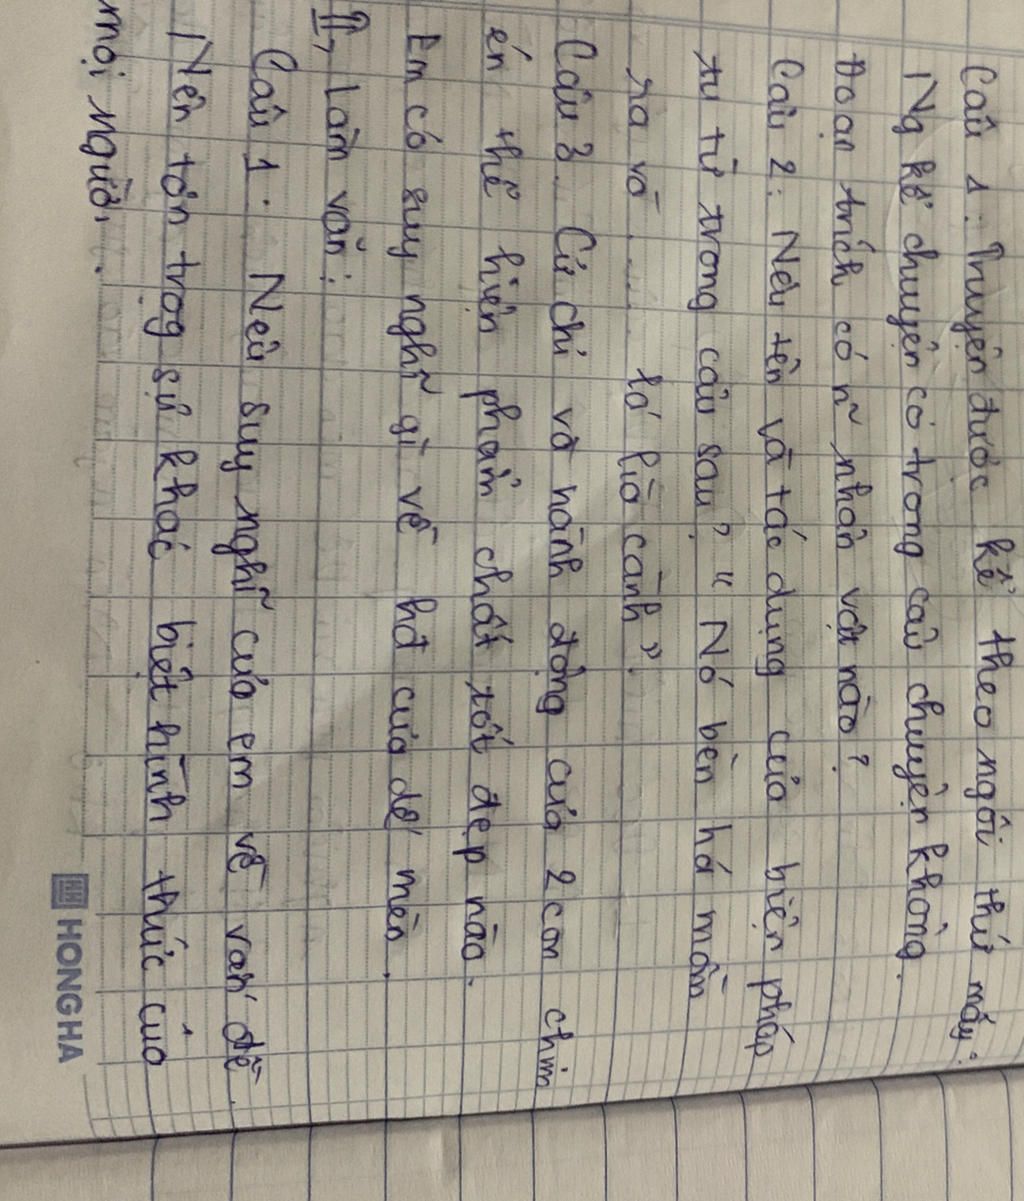 Câu 1: Truyện được kể theo ngôi thứ mấy?
Ng kể chuyện có trong câu chuyện không.
Đoạn trích có n~ nhân vật nào?
Câu 2: Nêu tên và tác dụng của biện pháp
tu từ trong câu sau? "Nó bèn há mồm
ra và ..... tó lìa cành".
Câu 3. Cử chỉ và hành động của 2 con chim
én thể hiện phẩm chất tốt đẹp nào.
Em có suy nghĩ gì về hđ của dế mèn.
II, Làm văn:
Câu 1. Nêu suy nghĩ của em về vấn đề.
Nên tôn trog sự khác biệt hình thức của
mọi người.
HONG HA